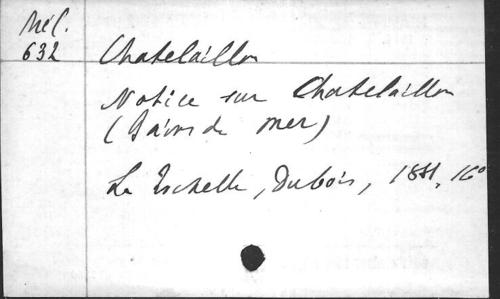 Mél.
632
Chatelaillon
Notice sur Chatelaillon
(Bains de mer)
La Rochelle, Dubois, 16°